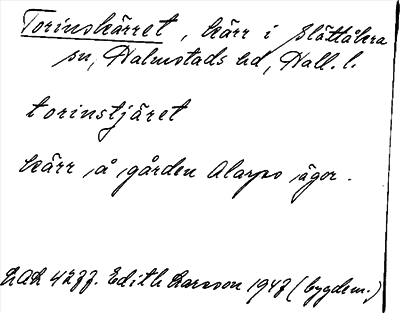 Torinskärret, kärr i Slättåkra
sn, Halmstads hd, Hall. l.
torinstjäret
kärr å gården Alarps ägor.
Edith Larsson 1947 (bygdem.)